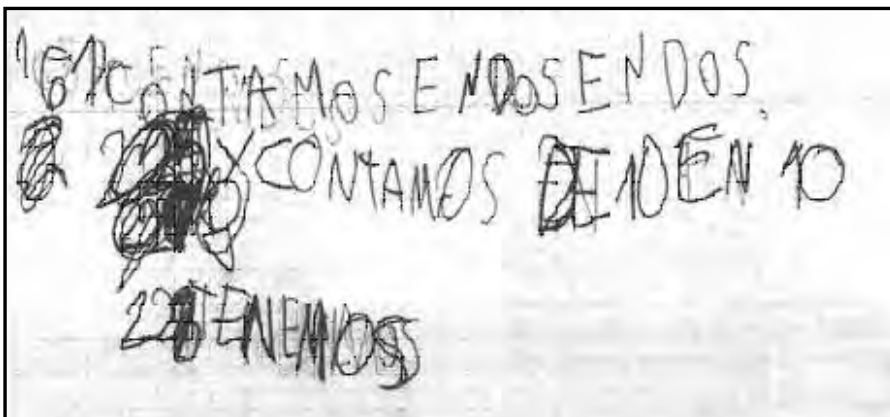 CONTAMOS EN DOS EN DOS
CONTAMOS DE 10 EN 10
TENEMOS